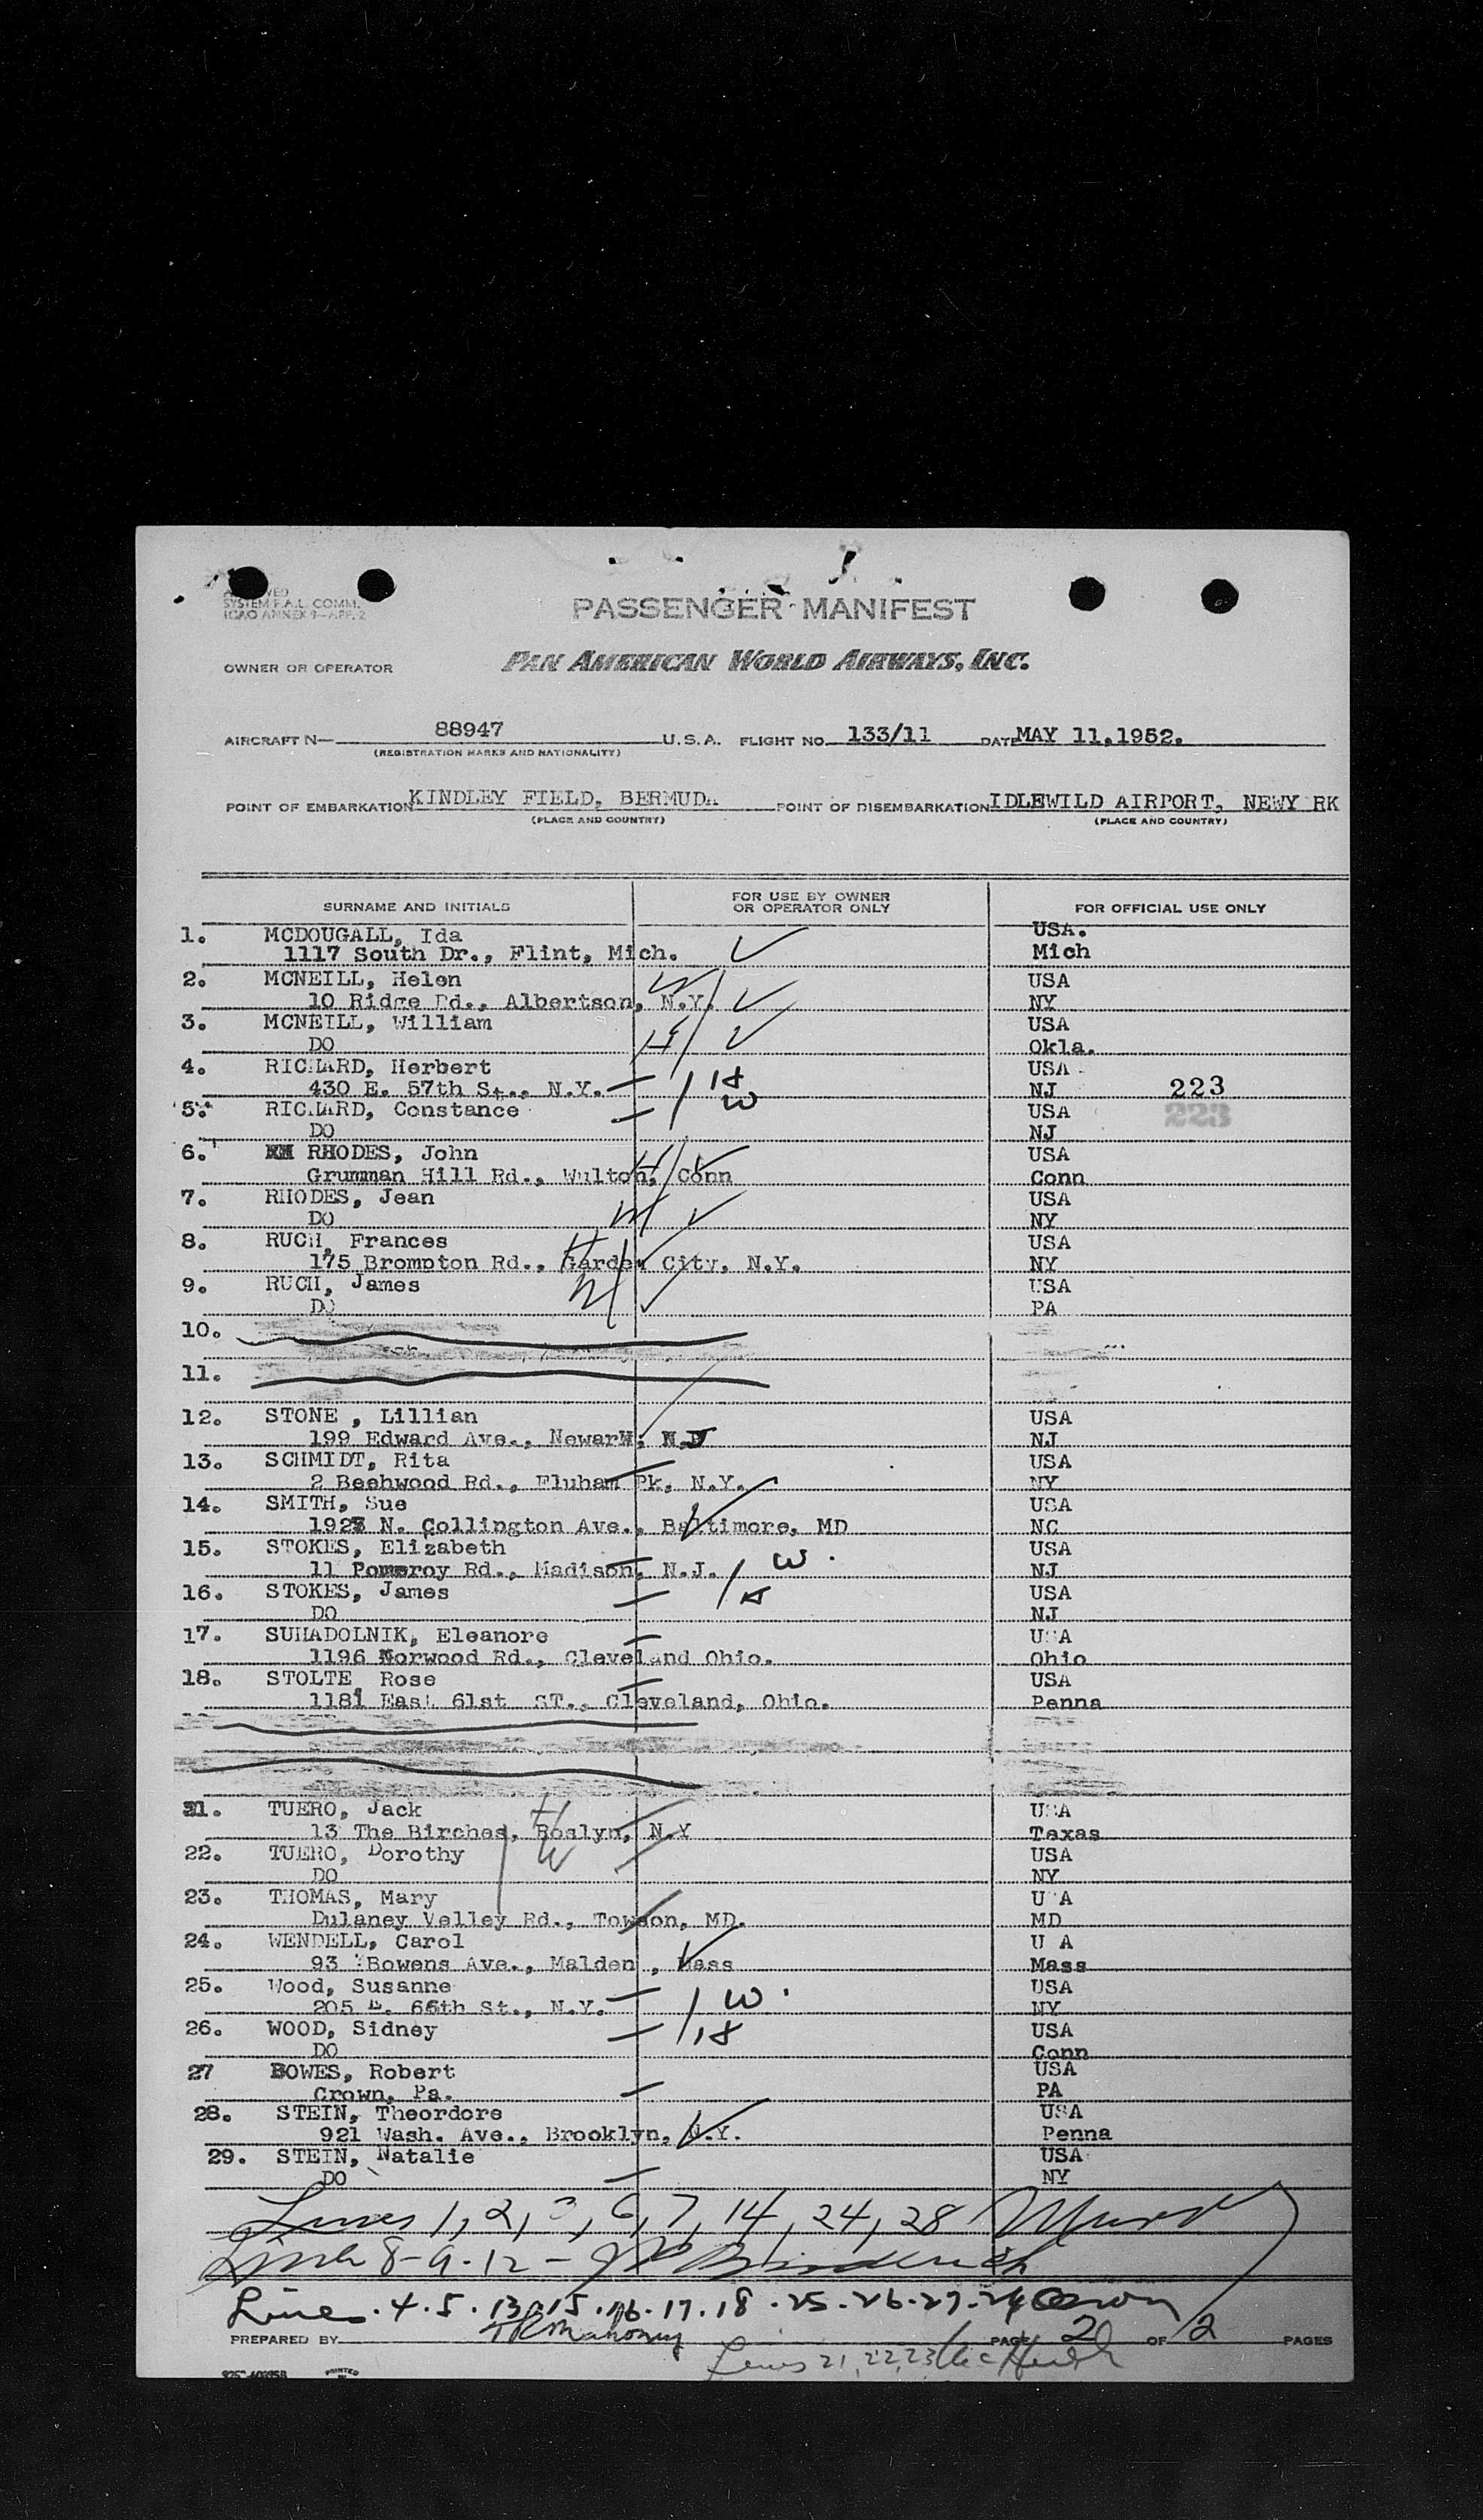 SYSTEM F.A.L. COMM.
ICAO ANNEX 9-APP. 2
PASSENGER MANIFEST
OWNER OR OPERATOR PAN AMERICAN WORLD AIRWAYS, INC.
AIRCRAFT N— 88947 U.S.A. FLIGHT NO. 133/11 DATE MAY 11,1952.
(REGISTRATION MARKS AND NATIONALITY)
POINT OF EMBARKATION KINDLEY FIELD, BERMUDA POINT OF DISEMBARKATION IDLEWILD AIRPORT, NEWY RK
(PLACE AND COUNTRY) (PLACE AND COUNTRY)
SURNAME AND INITIALS FOR USE BY OWNER OR OPERATOR ONLY FOR OFFICIAL USE ONLY
1. MCDOUGALL, Ida USA.
1117 South Dr., Flint, Mich. Mich
2. MCNEILL, Helen W USA
10 Ridge Rd., Albertson, N.Y. NY
3. MCNEILL, William USA
DO H Okla.
4. RICHARD, Herbert H USA
430 E. 57th St., N.Y. NJ 223
5. RICHARD, Constance W USA 223
DO NJ
6. RHODES, John H USA
Grumman Hill Rd., Wulton, Conn Conn
7. RHODES, Jean USA
DO W NY
8. RUCH, Frances H USA
175 Brompton Rd., Garden City, N.Y. NY
9. RUCH, James W USA
DO PA
10.
11.
12. STONE , Lillian USA
199 Edward Ave., Newark, N.J NJ
13. SCHMIDT, Rita USA
2 Beehwood Rd., Fluham Pk, N.Y. NY
14. SMITH, Sue USA
1927 N. Collington Ave., Baltimore, MD NC
15. STOKES, Elizabeth W. USA
11 Pomeroy Rd., Madison, N.J. NJ
16. STOKES, James H USA
DO NJ
17. SUHADOLNIK, Eleanore USA
1196 Norwood Rd., Cleveland Ohio. Ohio
18. STOLTE Rose USA
1181 East 61st ST., Cleveland, Ohio. Penna
21. TUERO, Jack H USA
13 The Birches, Roslyn, N.Y Texas
22. TUERO, Dorothy W USA
DO NY
23. THOMAS, Mary U A
Dulaney Velley Rd., Towson, MD. MD
24. WENDELL, Carol U A
93 Bowens Ave., Malden , Mass Mass
25. Wood, Susanne W. USA
205 E. 66th St., N.Y. NY
26. WOOD, Sidney H USA
DO Conn
27 BOWES, Robert USA
Crown, Pa. PA
28. STEIN, Theordore USA
921 Wash. Ave., Brooklyn, N.Y. Penna
29. STEIN, Natalie USA
DO NY
Lines 1, 2, 3, 6, 7, 14, 24, 28
8-9-12-
Lines. 4. 5. 13. 15. 16. 17. 18. 25. 26. 27. 29
PREPARED BY TR Mahoney PAGE 2 OF 2 PAGES
Lines 21, 22, 23 McHugh